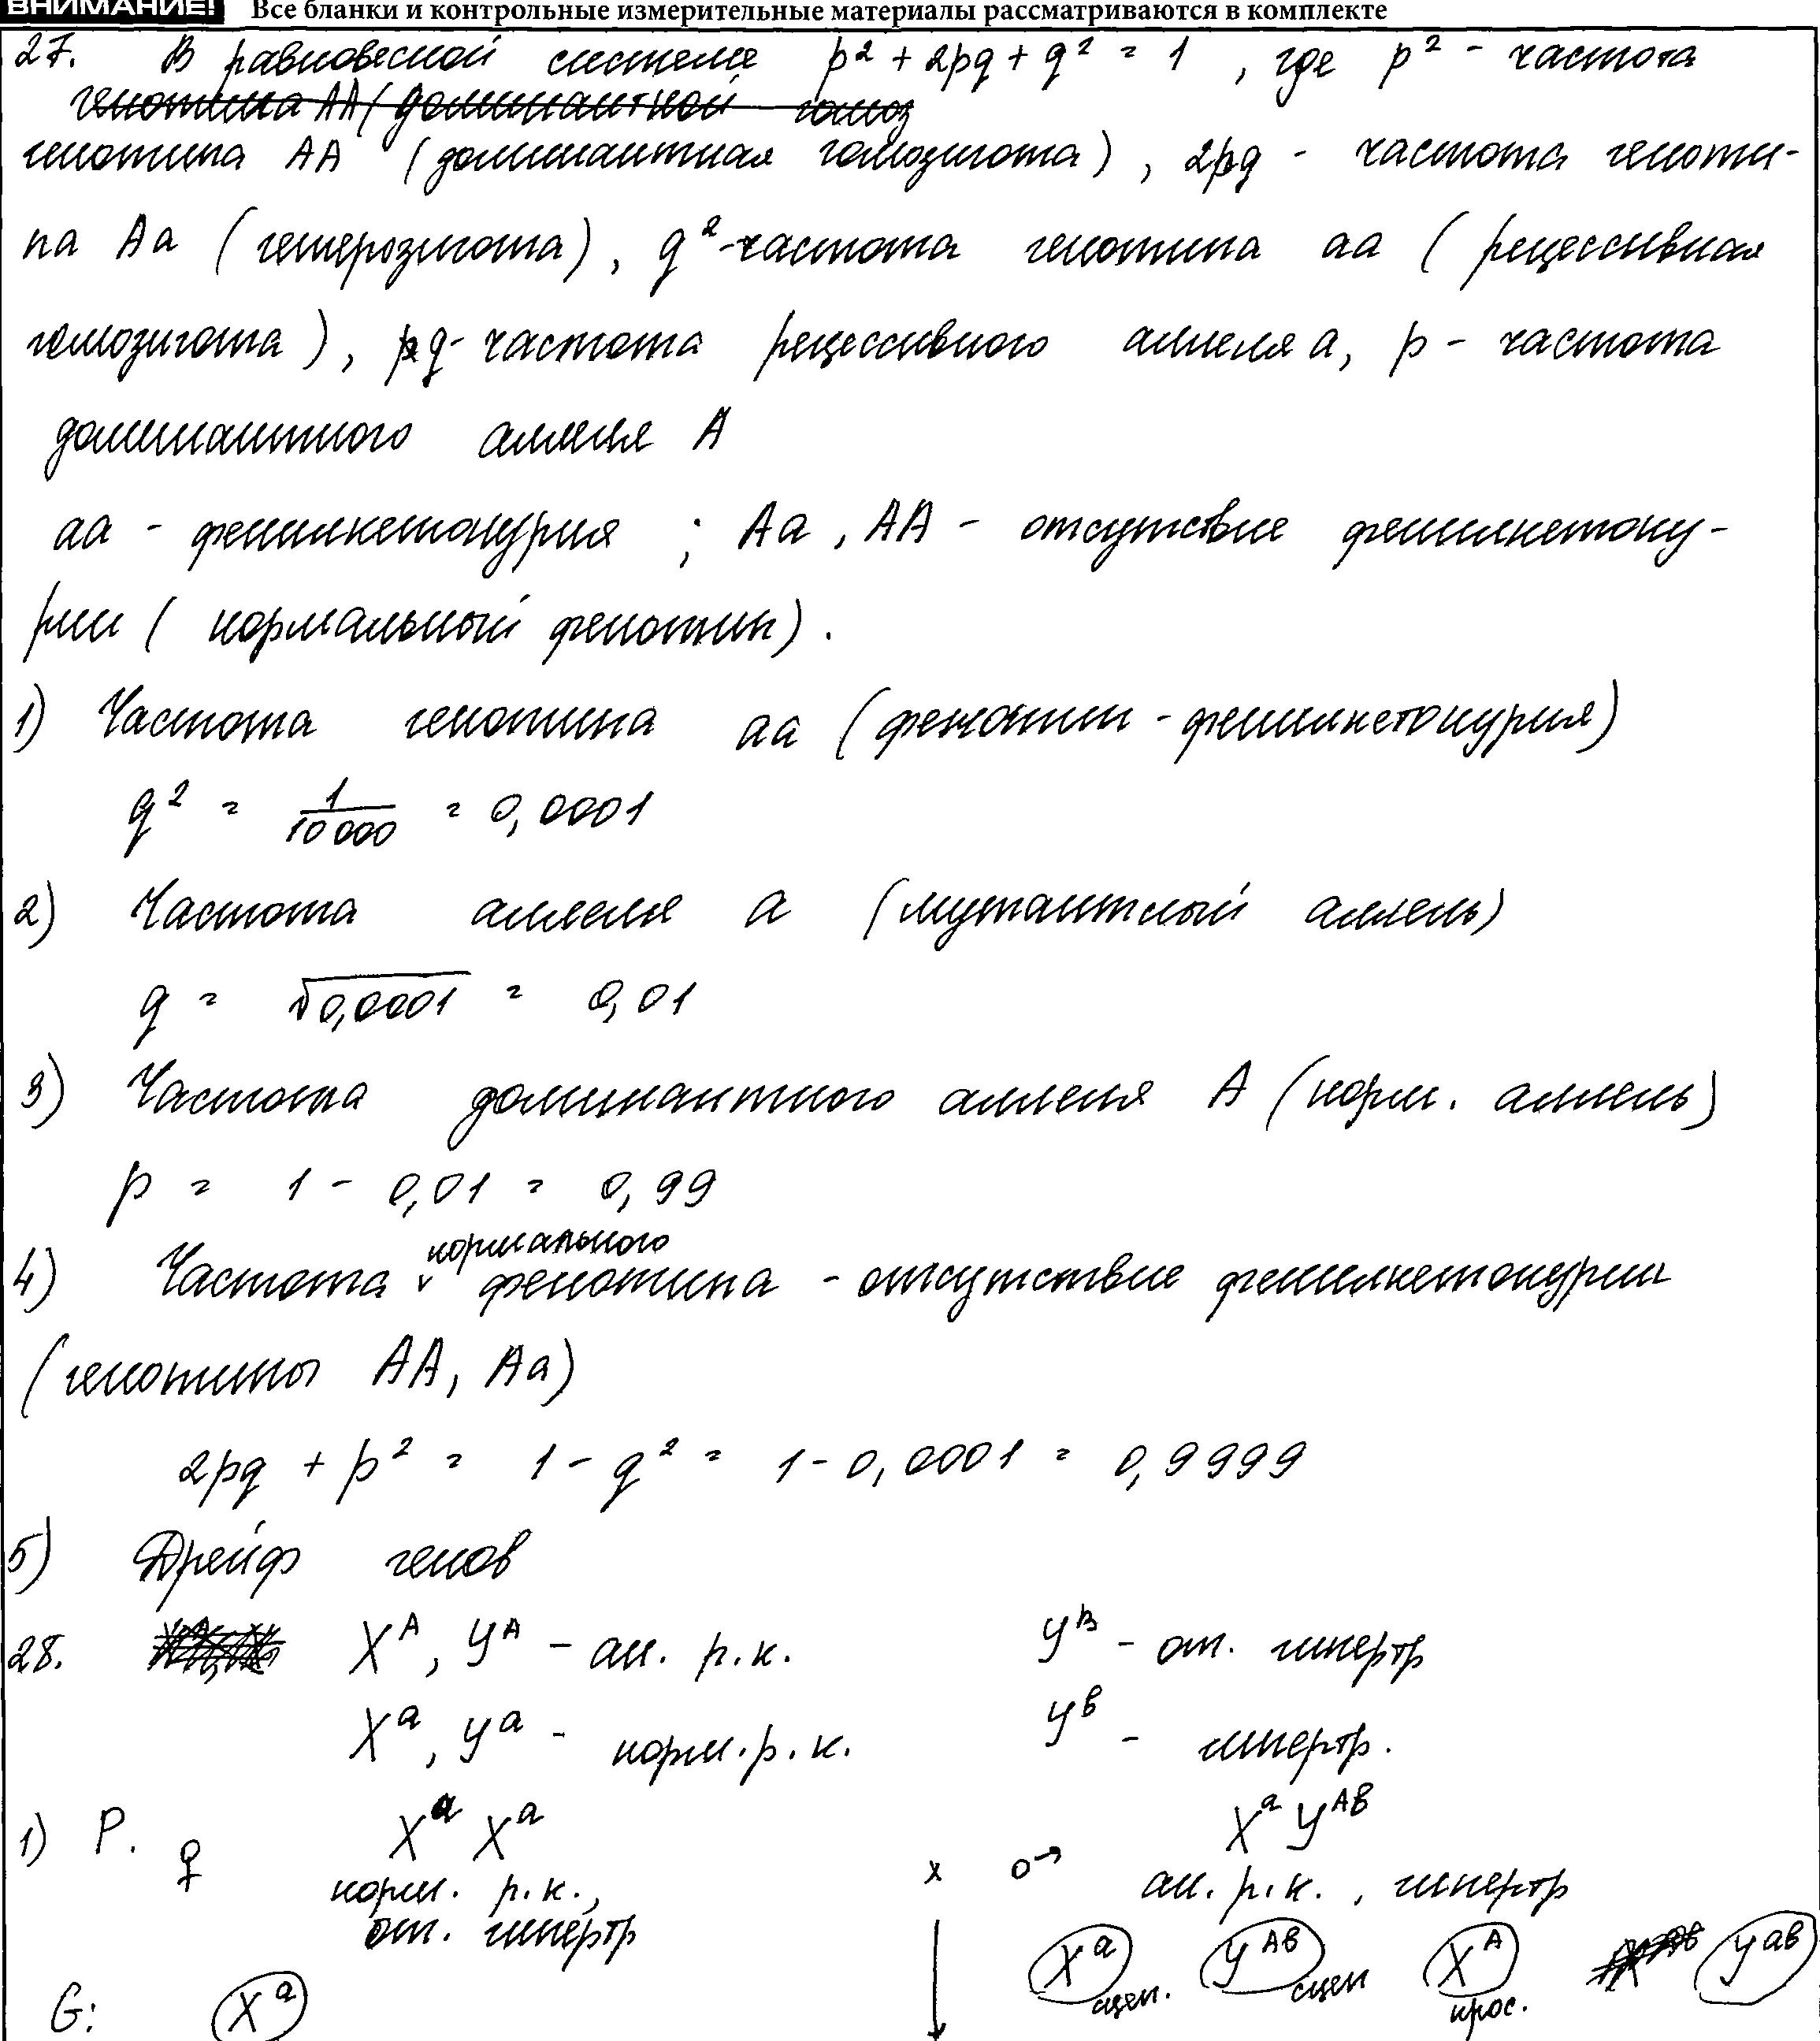 ВНИМАНИЕ! Все бланки и контрольные измерительные материалы рассматриваются в комплекте
27. В равновесной системе p² + 2pq + q² = 1 , где p² - частота
генотипа AA (доминантной гомоз
генотипа AA (доминантная гомозигота) , 2pq - частота геноти-
па Aa (гетерозигота) , q² - частота генотипа aa ( рецессивная
гомозигота ) , q - частота рецессивного аллеля a, p - частота
доминантного аллеля A
aa - фенилкетонурия ; Aa , AA - отсутствие фенилкетону-
рии ( нормальный фенотип) .
1) Частота генотипа aa (фенотип - фенилкетонурия)
q² = 1/10 000 = 0,0001
2) Частота аллеля a (мутантный аллель)
q = √0,0001 = 0,01
3) Частота доминантного аллеля A (норм. аллель)
p = 1 - 0,01 = 0,99
4) Частота нормального фенотипа - отсутствие фенилкетонурии
(генотипы AA, Aa)
2pq + p² = 1 - q² = 1 - 0,0001 = 0,9999
5) Дрейф генов
28. X^A, Y^A - ан. р.к. Y^B - от. гипертр
X^a, Y^a - норм. р.к. Y^b - гипертр.
1) P. ♀ X^a X^a x ♂ X^a Y^Ab
норм. р.к., ан. р.к. , гипертр
от. гипертр
G: X^a X^a Y^Ab X^A Y^ab
сцеп. сцеп крос.